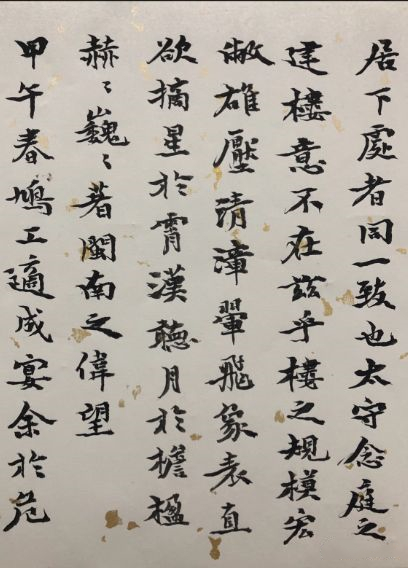 居下處者同一致也太守念庭之
建樓意不在兹乎樓之規模宏
敞雄壓清漳翬飛象表直
欲摘星於霄漢聽月於檐楹
赫〻巍〻著閩南之偉望
甲午春鳩工適成宴余於危